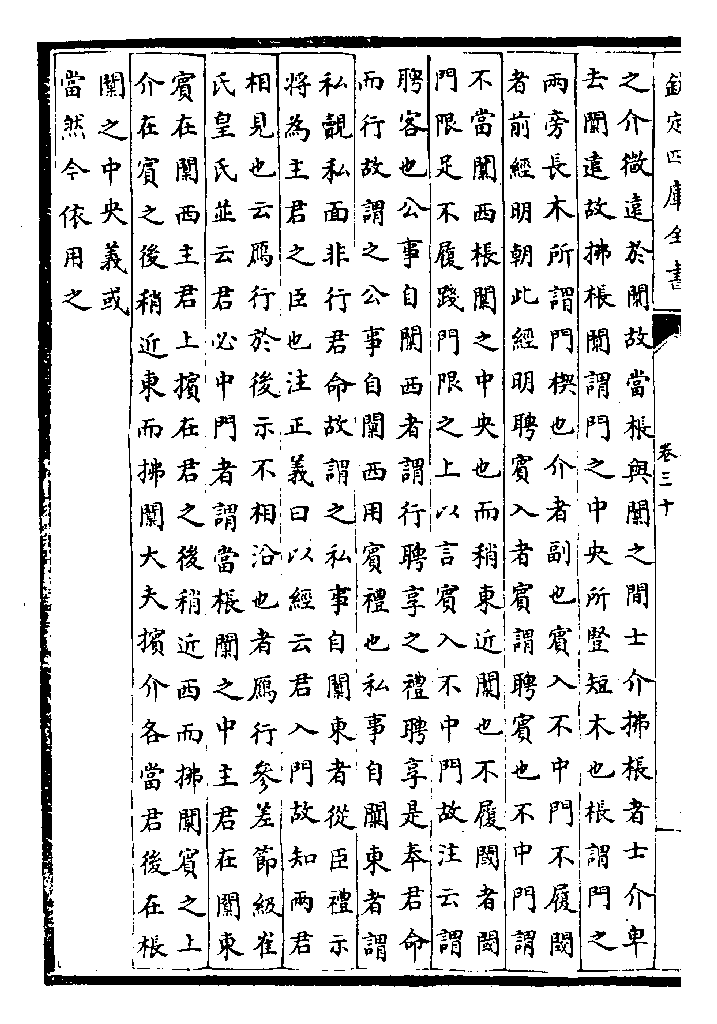 欽定四庫全書
卷三十
之介微遠於闑故當棖與闑之間士介拂棖者士介卑
去闑遠故拂棖闑謂門之中央所豎短木也棖謂門之
兩旁長木所謂門楔也介者副也賓入不中門不履閾
者前經明朝此經明聘賓入者賓謂聘賓也不中門謂
不當闑西棖闑之中央也而稍東近闑也不履閾者閾
門限足不履踐門限之上以言賓入不中門故注云謂
聘客也公事自闑西者謂行聘享之禮聘享是奉君命
而行故謂之公事自闑西用賓禮也私事自闑東者謂
私覿私面非行君命故謂之私事自闑東者從臣禮示
將為主君之臣也注正義曰以經云君入門故知兩君
相見也云鴈行於後示不相沿也者鴈行參差節級崔
氏皇氏並云君必中門者謂當棖闑之中主君在闑東
賓在闑西主君上擯在君之後稍近西而拂闑賓之上
介在賓之後稍近東而拂闑大夫擯介各當君後在棖
闑之中央義或
當然今依用之